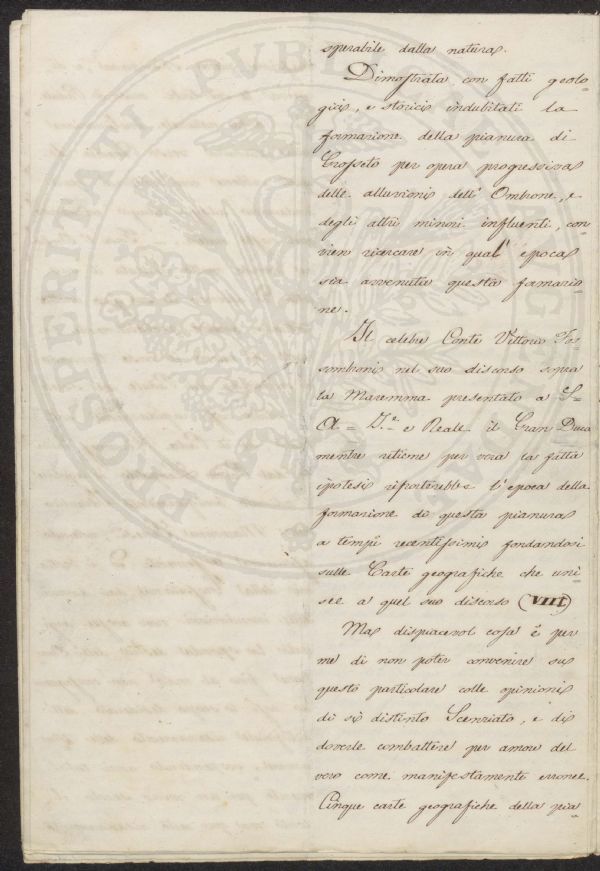 sperabile dalla natura.
Dimostrata con fatti geolo-
gici, e storici indubitati la
formazione della pianura di
Grosseto per opera progressiva
delle alluvioni dell' Ombrone, e
degli altri minori influenti, con
vien ricercare in qual' epoca
sia avvenuta questa formazio-
ne.
Il celebre Conte Vittorio Fos-
sombroni nel suo discorso sopra
la Maremma presentato a S=
A= I.e e Reale il Gran Duca
mentre ritiene per vera la fatta
ipotesi riporterebbe l'epoca della
formazione di questa pianura
a tempi recentissimi fondandosi
sulle Carte geografiche che uni-
sce a quel suo discorso (VIII)
Ma dispiacevol cosa è per
me di non poter convenire su
questo particolare colle opinioni
di sì distinto Scenziato, e di
doverle combattere per amor del
vero come manifestamente erronee.
Cinque carte geografiche della pia
PROSPERITATI PUBLICAE